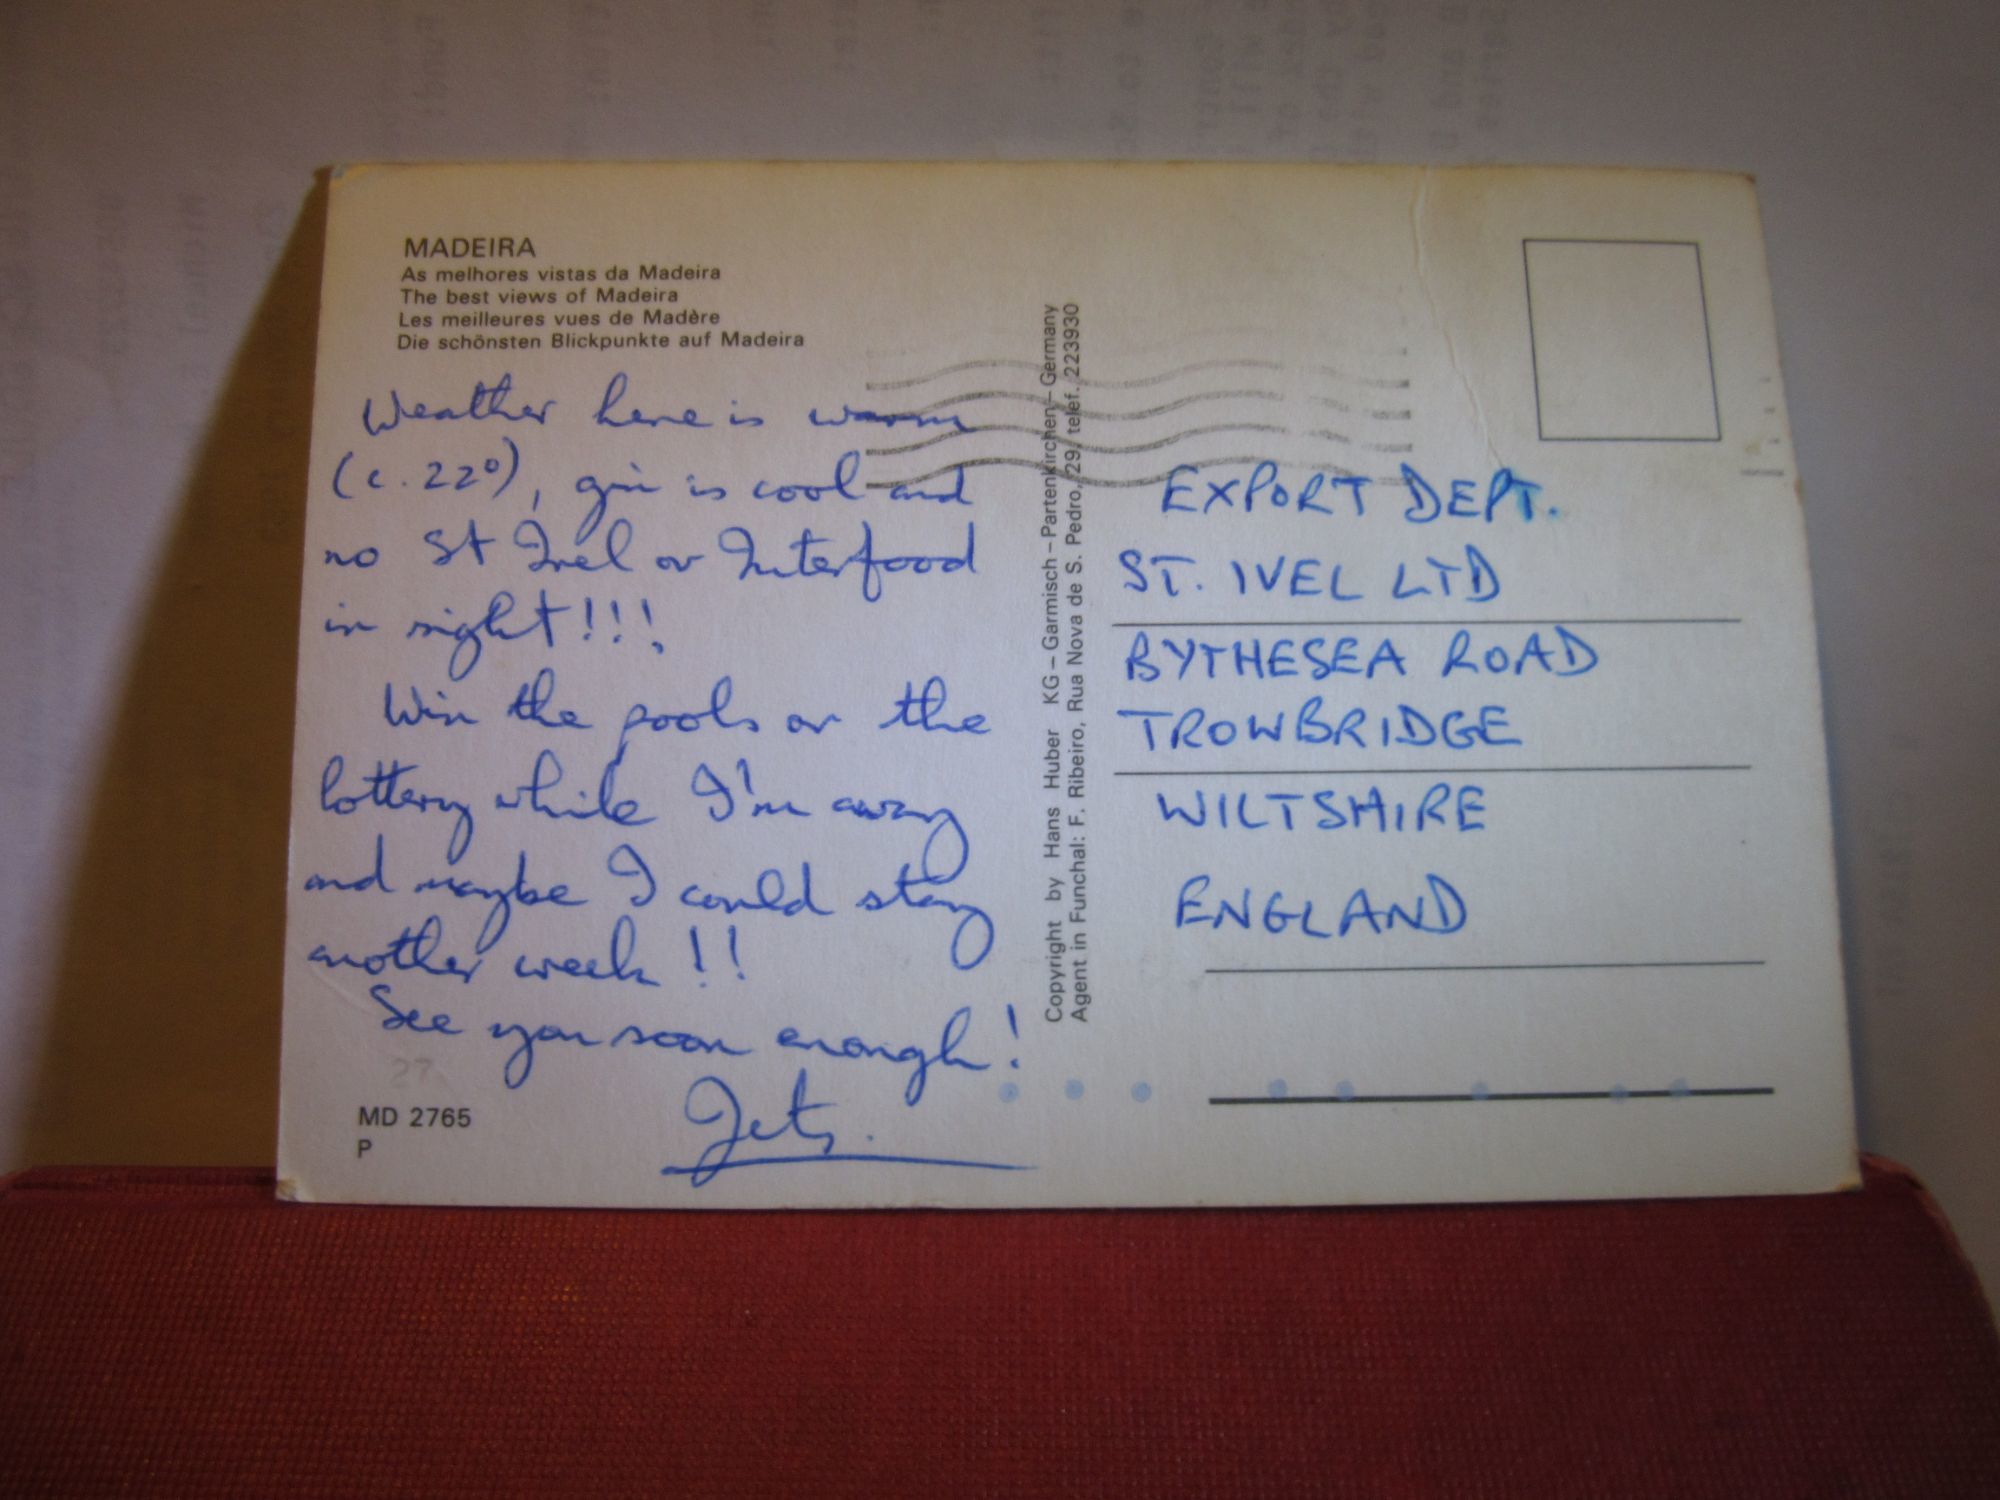 MADEIRA
As melhores vistas da Madeira
The best views of Madeira
Les meilleures vues de Madère
Die schönsten Blickpunkte auf Madeira
Weather here is warm
(c. 22°), gin is cool and
no St Ivel or Interfood
in sight!!!
Win the pools or the
lottery while I'm away
and maybe I could stay
another week!!
See you soon enough!
MD 2765
P
Copyright by Hans Huber KG – Garmisch – Partenkirchen – Germany
Agent in Funchal: F. Ribeiro, Rua Nova de S. Pedro, 29, telef. 223930
EXPORT DEPT.
ST. IVEL LTD
BYTHESEA ROAD
TROWBRIDGE
WILTSHIRE
ENGLAND